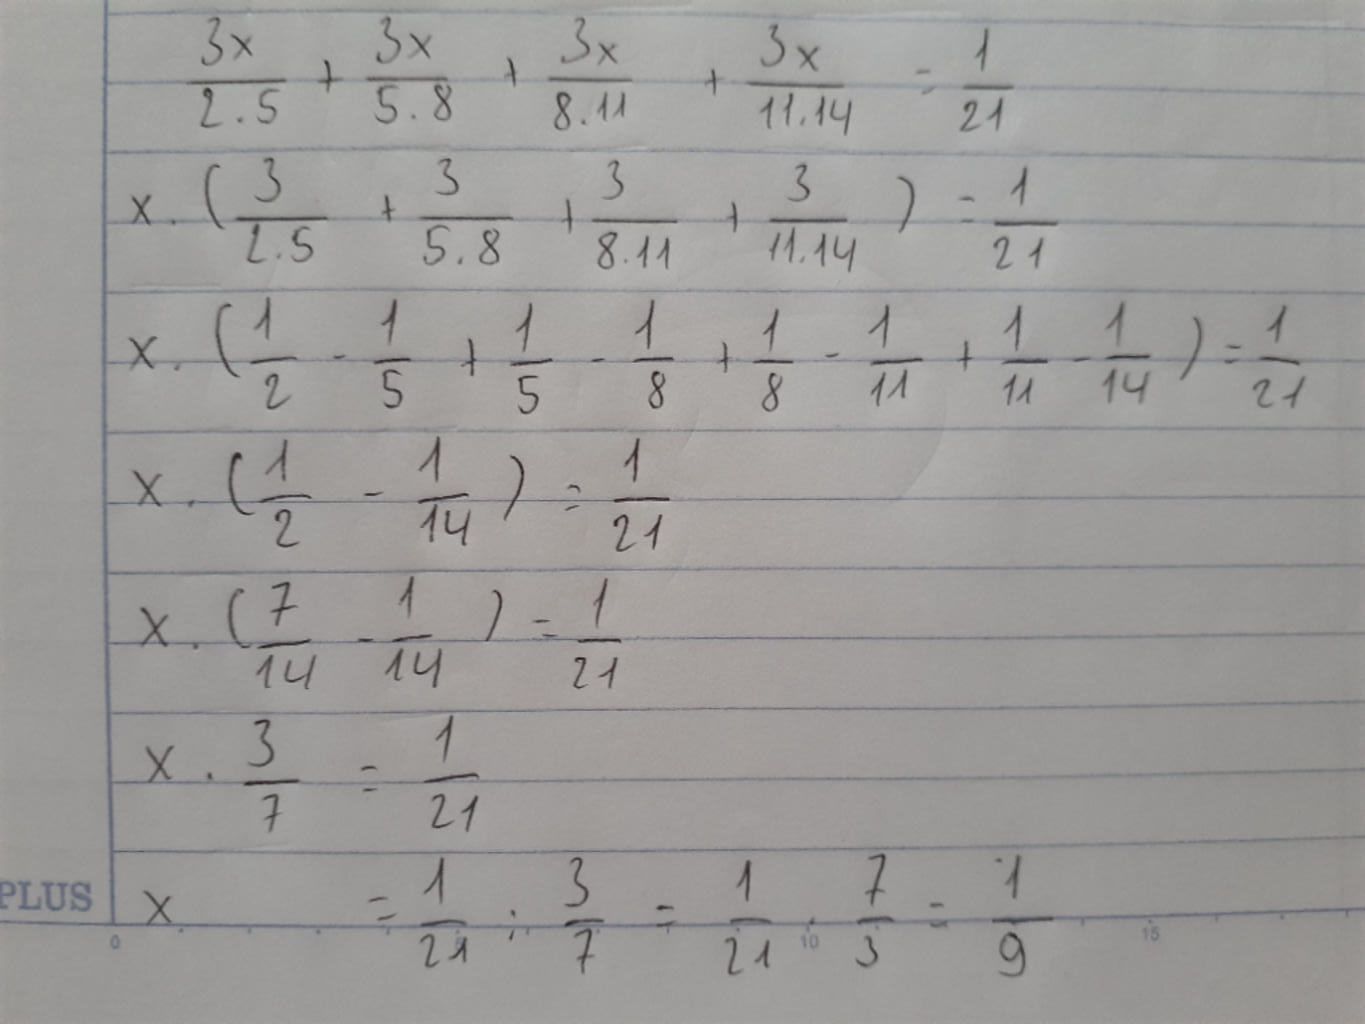 3x/2.5 + 3x/5.8 + 3x/8.11 + 3x/11.14 = 1/21
x.(3/2.5 + 3/5.8 + 3/8.11 + 3/11.14) = 1/21
x.(1/2 - 1/5 + 1/5 - 1/8 + 1/8 - 1/11 + 1/11 - 1/14) = 1/21
x.(1/2 - 1/14) = 1/21
x.(7/14 - 1/14) = 1/21
x . 3/7 = 1/21
PLUS x = 1/21 : 3/7 = 1/21 . 7/3 = 1/9
0 10 15